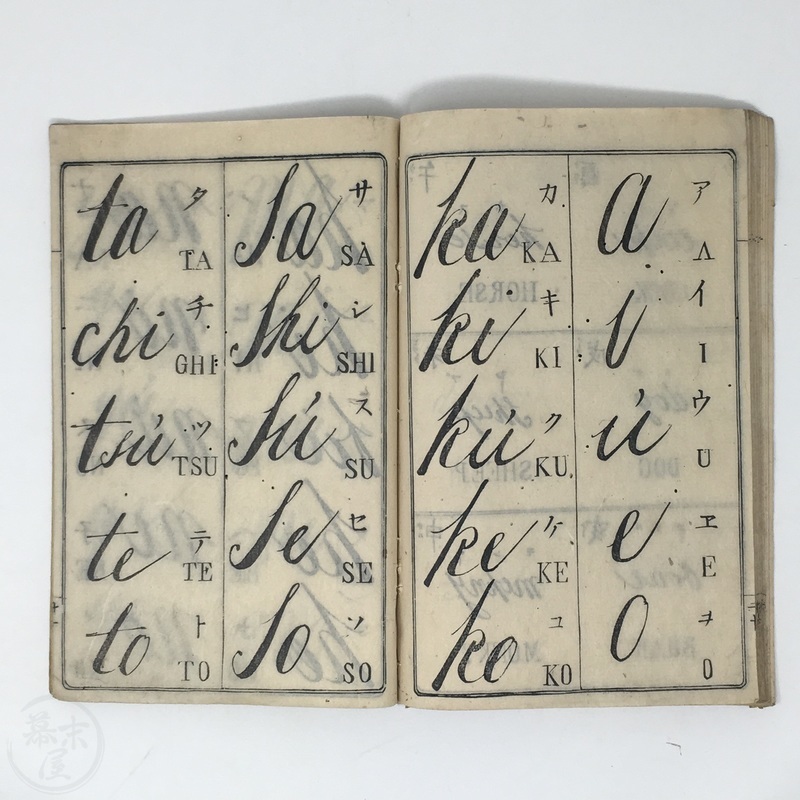 a ア A
i イ I
ú ウ U
e ヱ E
o ヲ O
ka カ KA
ki キ KI
kú ク KU
ke ケ KE
ko コ KO
sa サ SA
shi シ SHI
sú ス SU
se セ SE
so ソ SO
ta タ TA
chi チ GHI
tsú ツ TSU
te テ TE
to ト TO
幕末屋